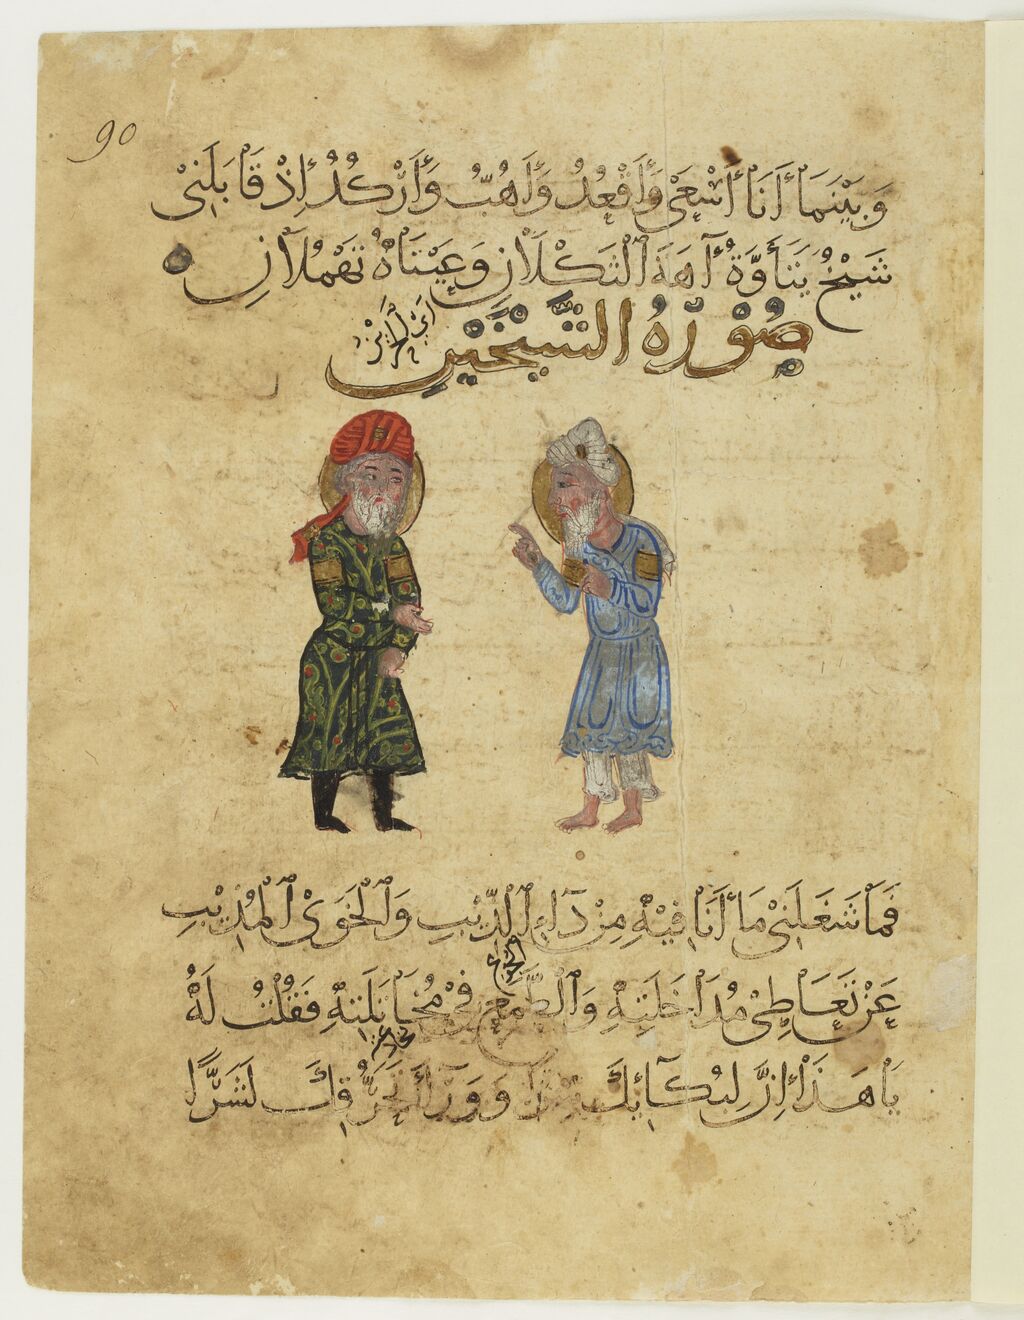 90
وَبَيْنَمَا أَنَا أَسْعَىٰ وَأَقْعُدُ وَأَهُبُّ وَأَرْكُدُ إِذْ قَابَلَنِيْ
شَيْخٌ يَتَأَوَّهُ أَهَةَ الثَّكْلَانِ وَعَيْنَاهُ تَهْمُلَانِ
صُوْرَةُ الشَّيْخَيْنِ
فَمَا شَغَلَنِيْ مَا أَنَا فِيْهِ مِنْ دَآءِ الذِّيْبِ وَالْخَوَىٰ الْمُذِيْبِ
الجوع
عَنْ تَعَاطِيْ مُدَاخَلَتِهِ وَالطَّمَعِ فِيْ مُخَاتَلَتِهِ فَقُلْتُ لَهُ
يَا هَذَا إِنَّ لِبُكَآئِكَ سِرًّا وَوَرَآءَ تَحَرُّقِكَ لَشَرًّا